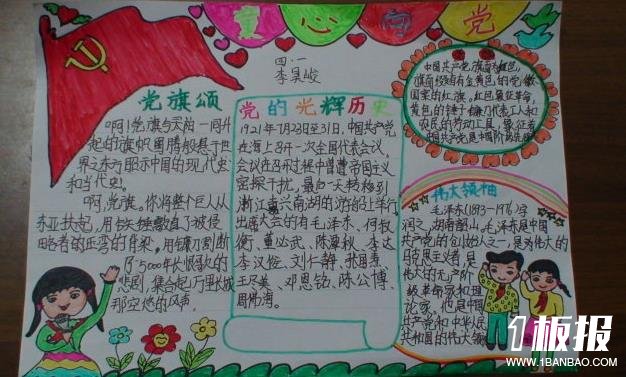 童心向党
四·一
李昊峻
党旗颂
啊!党旗与天灿一同升
起的旗帜
界之东方昭示中国的现代史
和当代史。
啊,党旗,你将整个巨人从
东亚扶起,用铁锤敲直了被侵
略者的压弯的脊梁。用镰刀割断
了5000年长恨歌的
悲剧,集合起万里长城
那空他的风声
党的光辉历史
1921年7月23日至31日,中国共产党
在海上召开一次全国代表会议,
会议在召开过程中曾遭帝国主义
密探干扰,最后一天转移到
浙江嘉兴南湖的游船上举行。
出席大会的有毛泽东、何叔
衡、董必武、陈潭秋、李达
李汉俊、刘仁静、张国焘
王尽美、邓恩铭、陈公博、
周佛海。
中国共产党旗面为红色,
旗面缀有金黄色的党徽
国案的红旗。红色象征革命,
黄色的锤子、镰刀代表工人和
农民的劳动工具,象征着
中国共产党是中国
伟大领袖
毛泽东(1893-1976)字
润之,湖南韶山,毛泽东是中国
共产党的创始人之一,是为伟大的
马克思主义者,是
伟大的无产阶
级革命家和理
论家。他是中国
共产党和中华人民
共和国的伟大领
板报
WWW.1BANBAO.COM